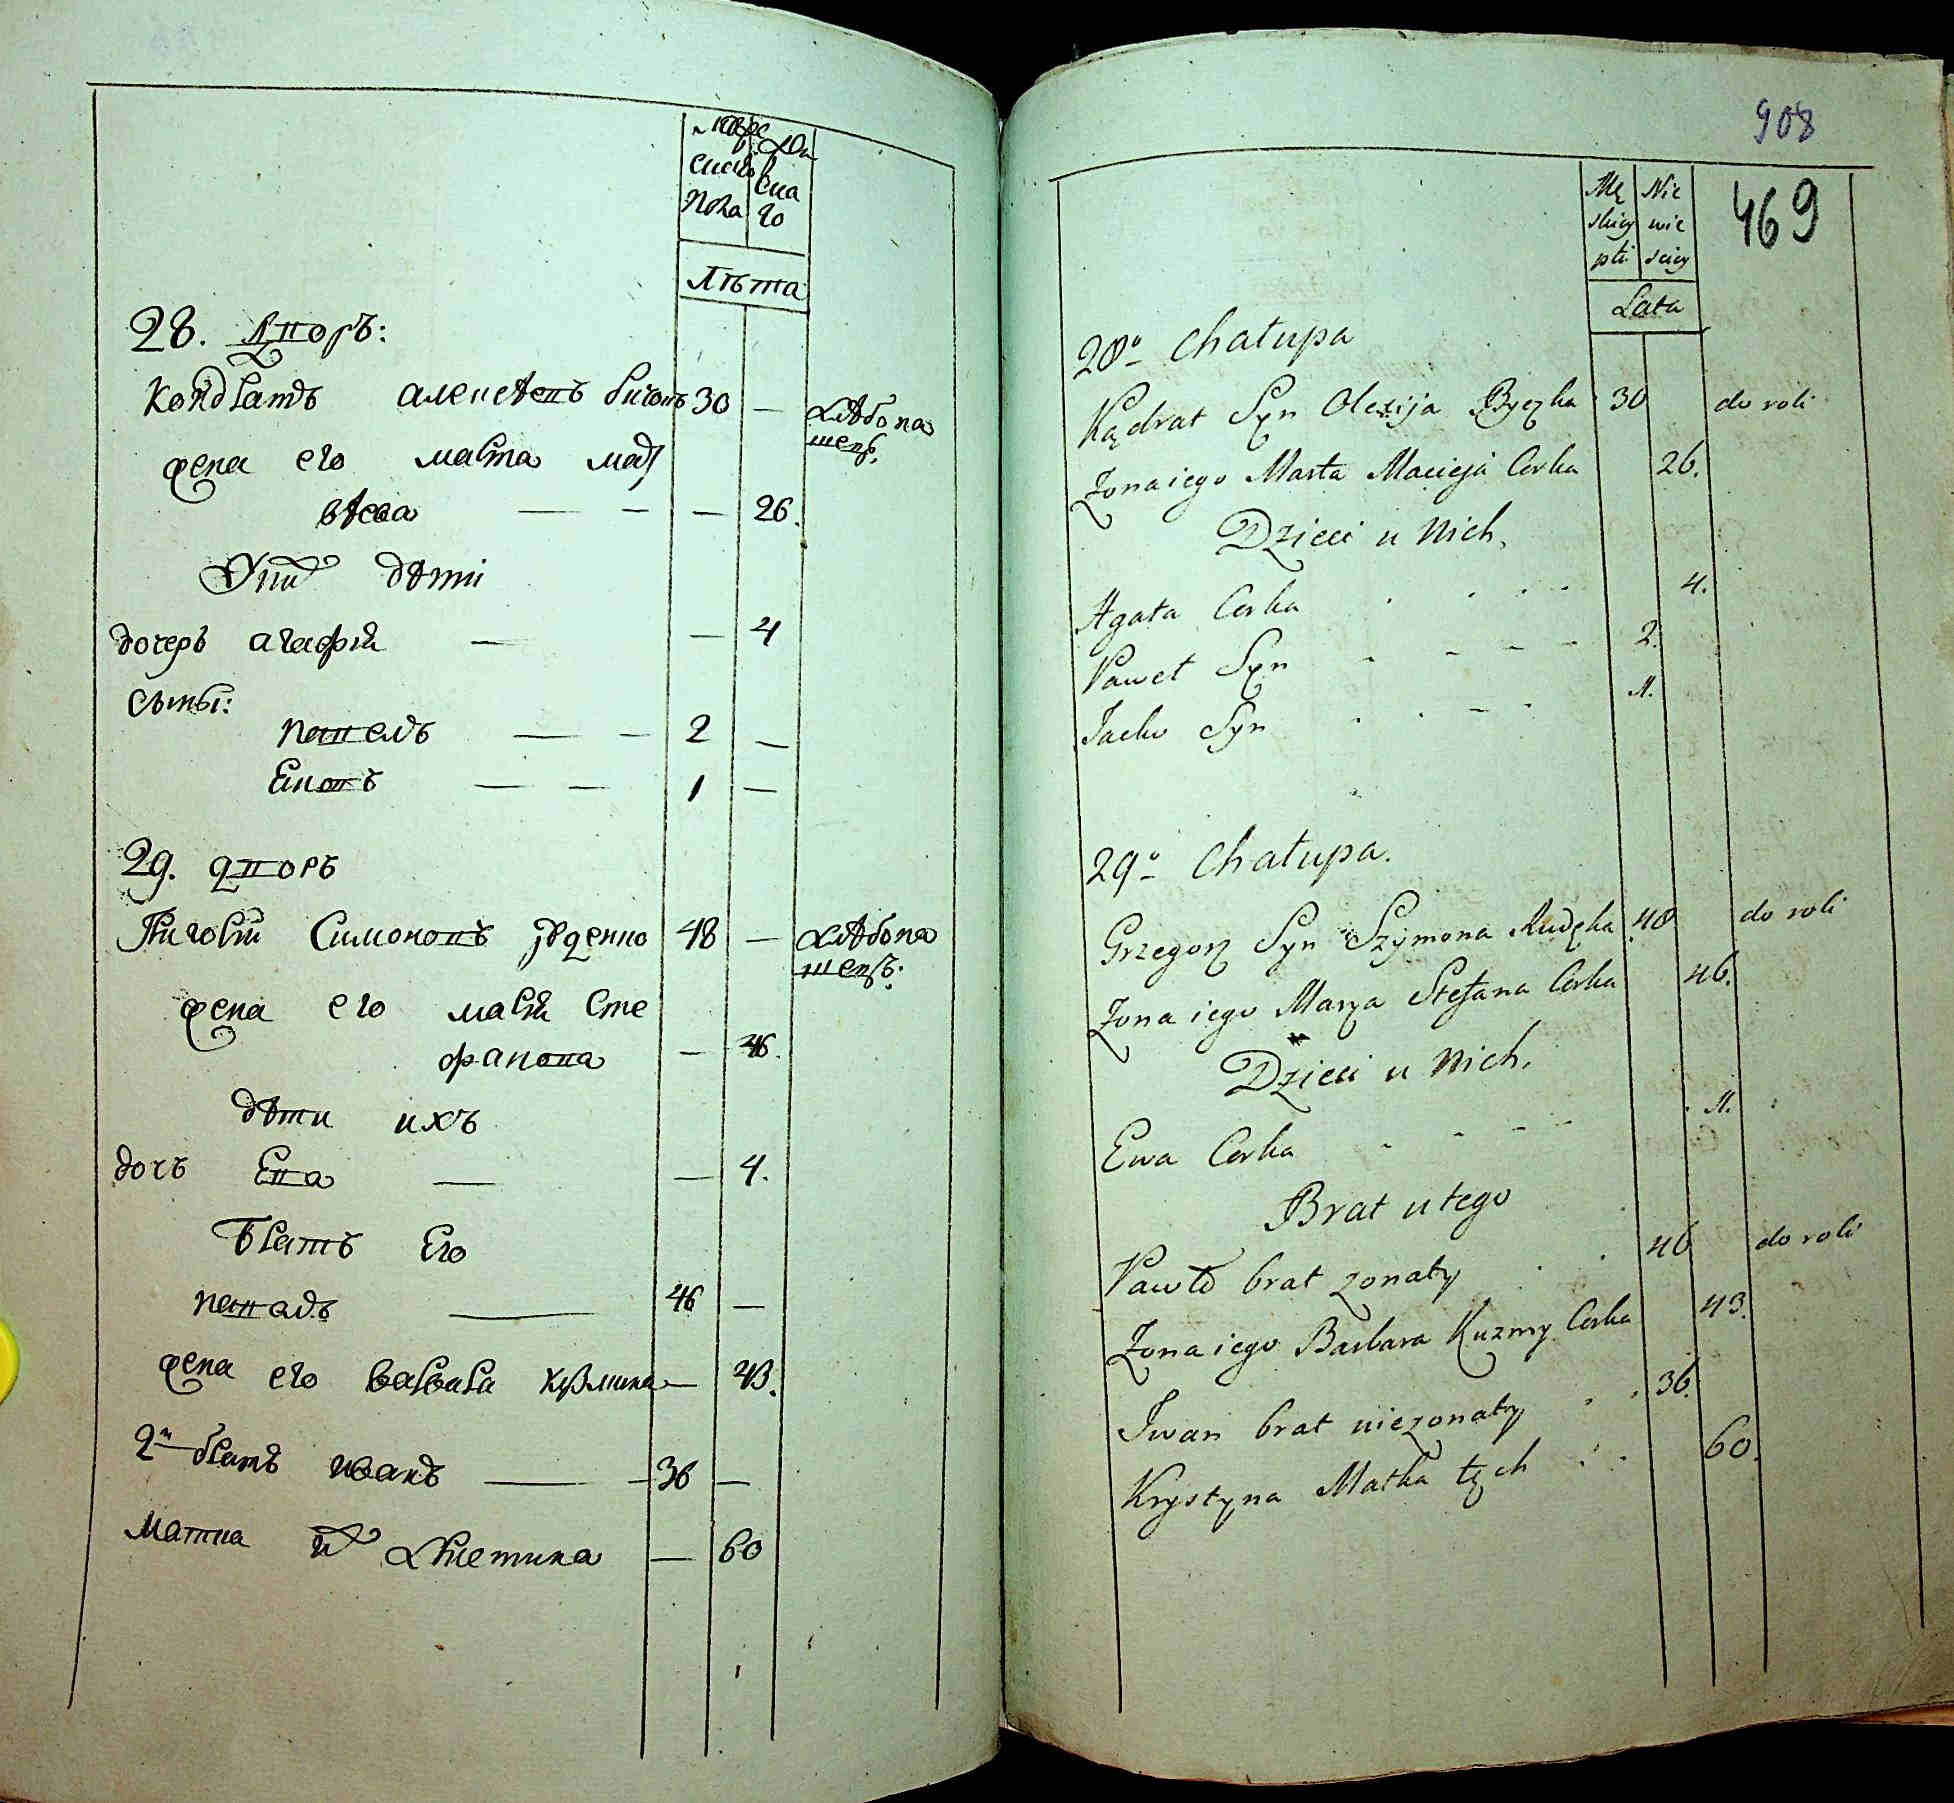 Лѣта
28. Дворъ:
Кондратъ Алексѣевъ Бычокъ 30 — хлѣбопа
жена его Марта Мат
вѣева — — — 26.
У них дѣти
дочерь Агафия — — 4
сыны:
Павелъ — — 2 —
— — 1 —
29. Дворъ
Григорий Симоновъ 48 — хлѣбопа
жена его Мария Сте
фанова — 46.
дѣти ихъ
дочь Ева — — 4.
Братъ Его
Павелъ — 46 —
жена его Варвара Кузмина — 43.
2й братъ Иванъ — — 36 —
Матка их Христина — 60
908
469
Mę Nie
skiey wie
płci sciey
Lata
28o Chałupa
Kądrat Syn Olexija Byczka 30 do roli
Zona iego Marta Macieja Corka 26.
Dzieci u Nich,
Agata Corka . . . - 4.
Paweł Syn - - - - 2.
Jacko Syn . . - - 1.
29o Chałupa.
Grzegorz Syn Szymona Rudzka 48 do roli
Zona iego Marya Stefana Corka 46.
Dzieci u Nich,
Ewa Corka - - - -
Brat u tego
Pawło brat zonaty . . 46 do roli
Zona iego Barbara Kuzmy Corka 43.
Iwan brat niezonaty . . 36.
Krystyna Matka tych . . 60.